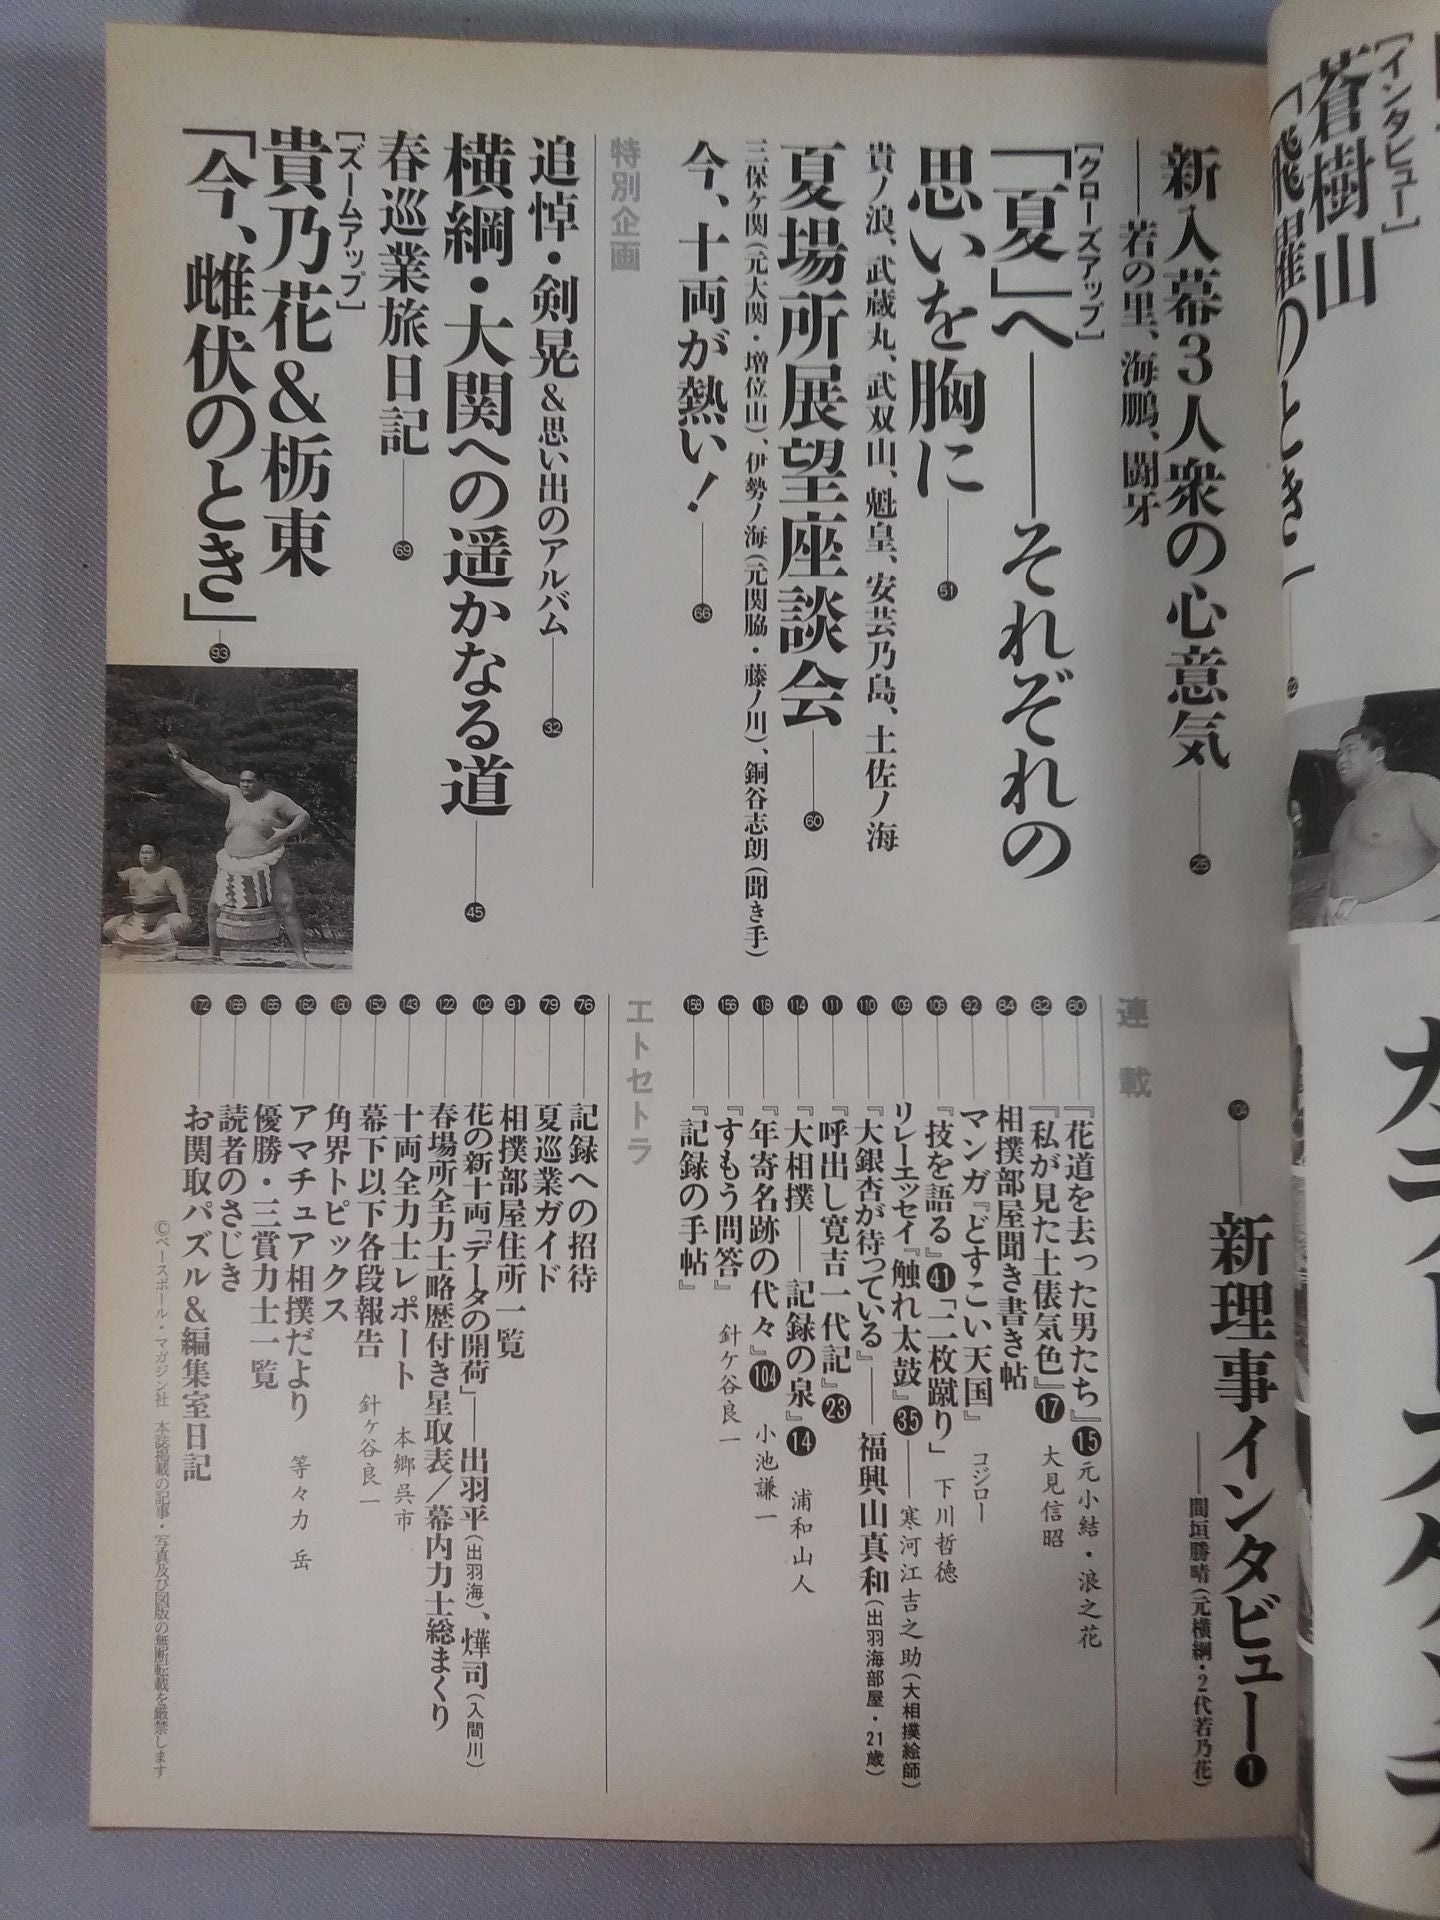 [インタビュー]
蒼樹山
「飛躍のとき」
新入幕3人衆の心意気 25
――若の里、海鵬、闘牙
[クローズアップ]
「夏」へ――それぞれの
思いを胸に 51
貴ノ浪、武蔵丸、武双山、魁皇、安芸乃島、土佐ノ海
夏場所展望座談会 60
三保ケ関(元大関・増位山)、伊勢ノ海(元関脇・藤ノ川)、銅谷志朗(聞き手)
今、十両が熱い! 66
特別企画
追悼・剣晃&思い出のアルバム 32
横綱・大関への遥かなる道 45
春巡業旅日記 69
[ズームアップ]
貴乃花&栃東
「今、雌伏のとき」 93
104 新理事インタビュー❶
――間垣勝晴(元横綱・2代若乃花)
連載
80 『花道を去った男たち』⓯元小結・浪之花
82 『私が見た土俵気色』⓱ 大見信昭
84 相撲部屋聞き書き帖
92 マンガ『どすこい天国』 コジロー
106 『技を語る』㊶「二枚蹴り」 下川哲徳
109 リレーエッセイ『触れ太鼓』㉟――寒河江吉之助(大相撲絵師)
110 『大銀杏が待っている』――福興山真和(出羽海部屋・21歳)
111 『呼出し寛吉一代記』㉓
114 『大相撲――記録の泉』⓮ 浦和山人
118 『年寄名跡の代々』104 小池謙一
156 『すもう問答』 針ケ谷良一
158 『記録の手帖』
エトセトラ
76 記録への招待
79 夏巡業ガイド
91 相撲部屋住所一覧
102 花の新十両『データの開荷』――出羽平(出羽海)、燁司(入間川)
122 春場所全力士略歴付き星取表/幕内力士総まくり
143 十両全力士レポート 本郷呉市
152 幕下以下各段報告 針ケ谷良一
160 角界トピックス
162 アマチュア相撲だより 等々力岳
165 優勝・三賞力士一覧
168 読者のさじき
172 お関取パズル&編集室日記
©ベースボール・マガジン社 本誌掲載の記事・写真及び図版の無断転載を厳禁します